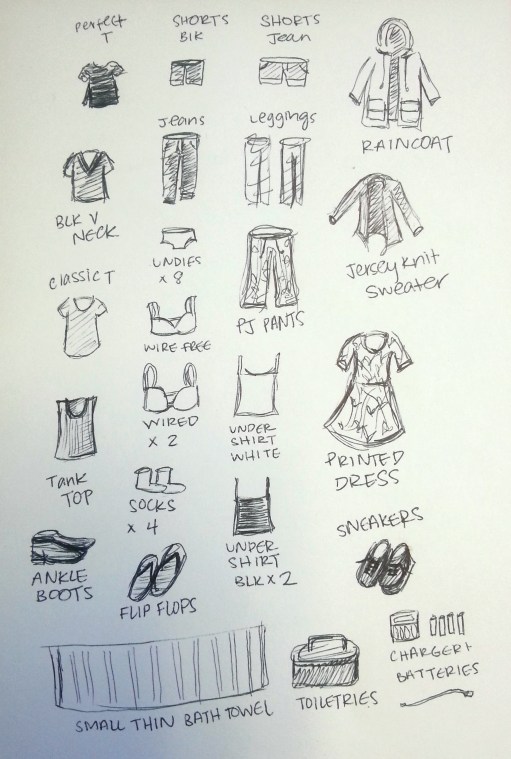 Perfect
T
SHORTS
BlK
SHORTS
Jean
RAINCOAT
Jeans
Leggings
BLK V
NECK
UNDIES
x 8
PJ PANTS
Jersey Knit
Sweater
Classic T
WIRE FREE
WIRED
x 2
UNDER
SHIRT
WHITE
PRINTED
DRESS
Tank
TOP
SOCKS
x 4
UNDER
SHIRT
BLK x 2
SNEAKERS
ANKLE
BOOTS
FLIP FLOPS
SMALL THIN BATH TOWEL
TOILETRIES
CHARGER +
BATTERIES